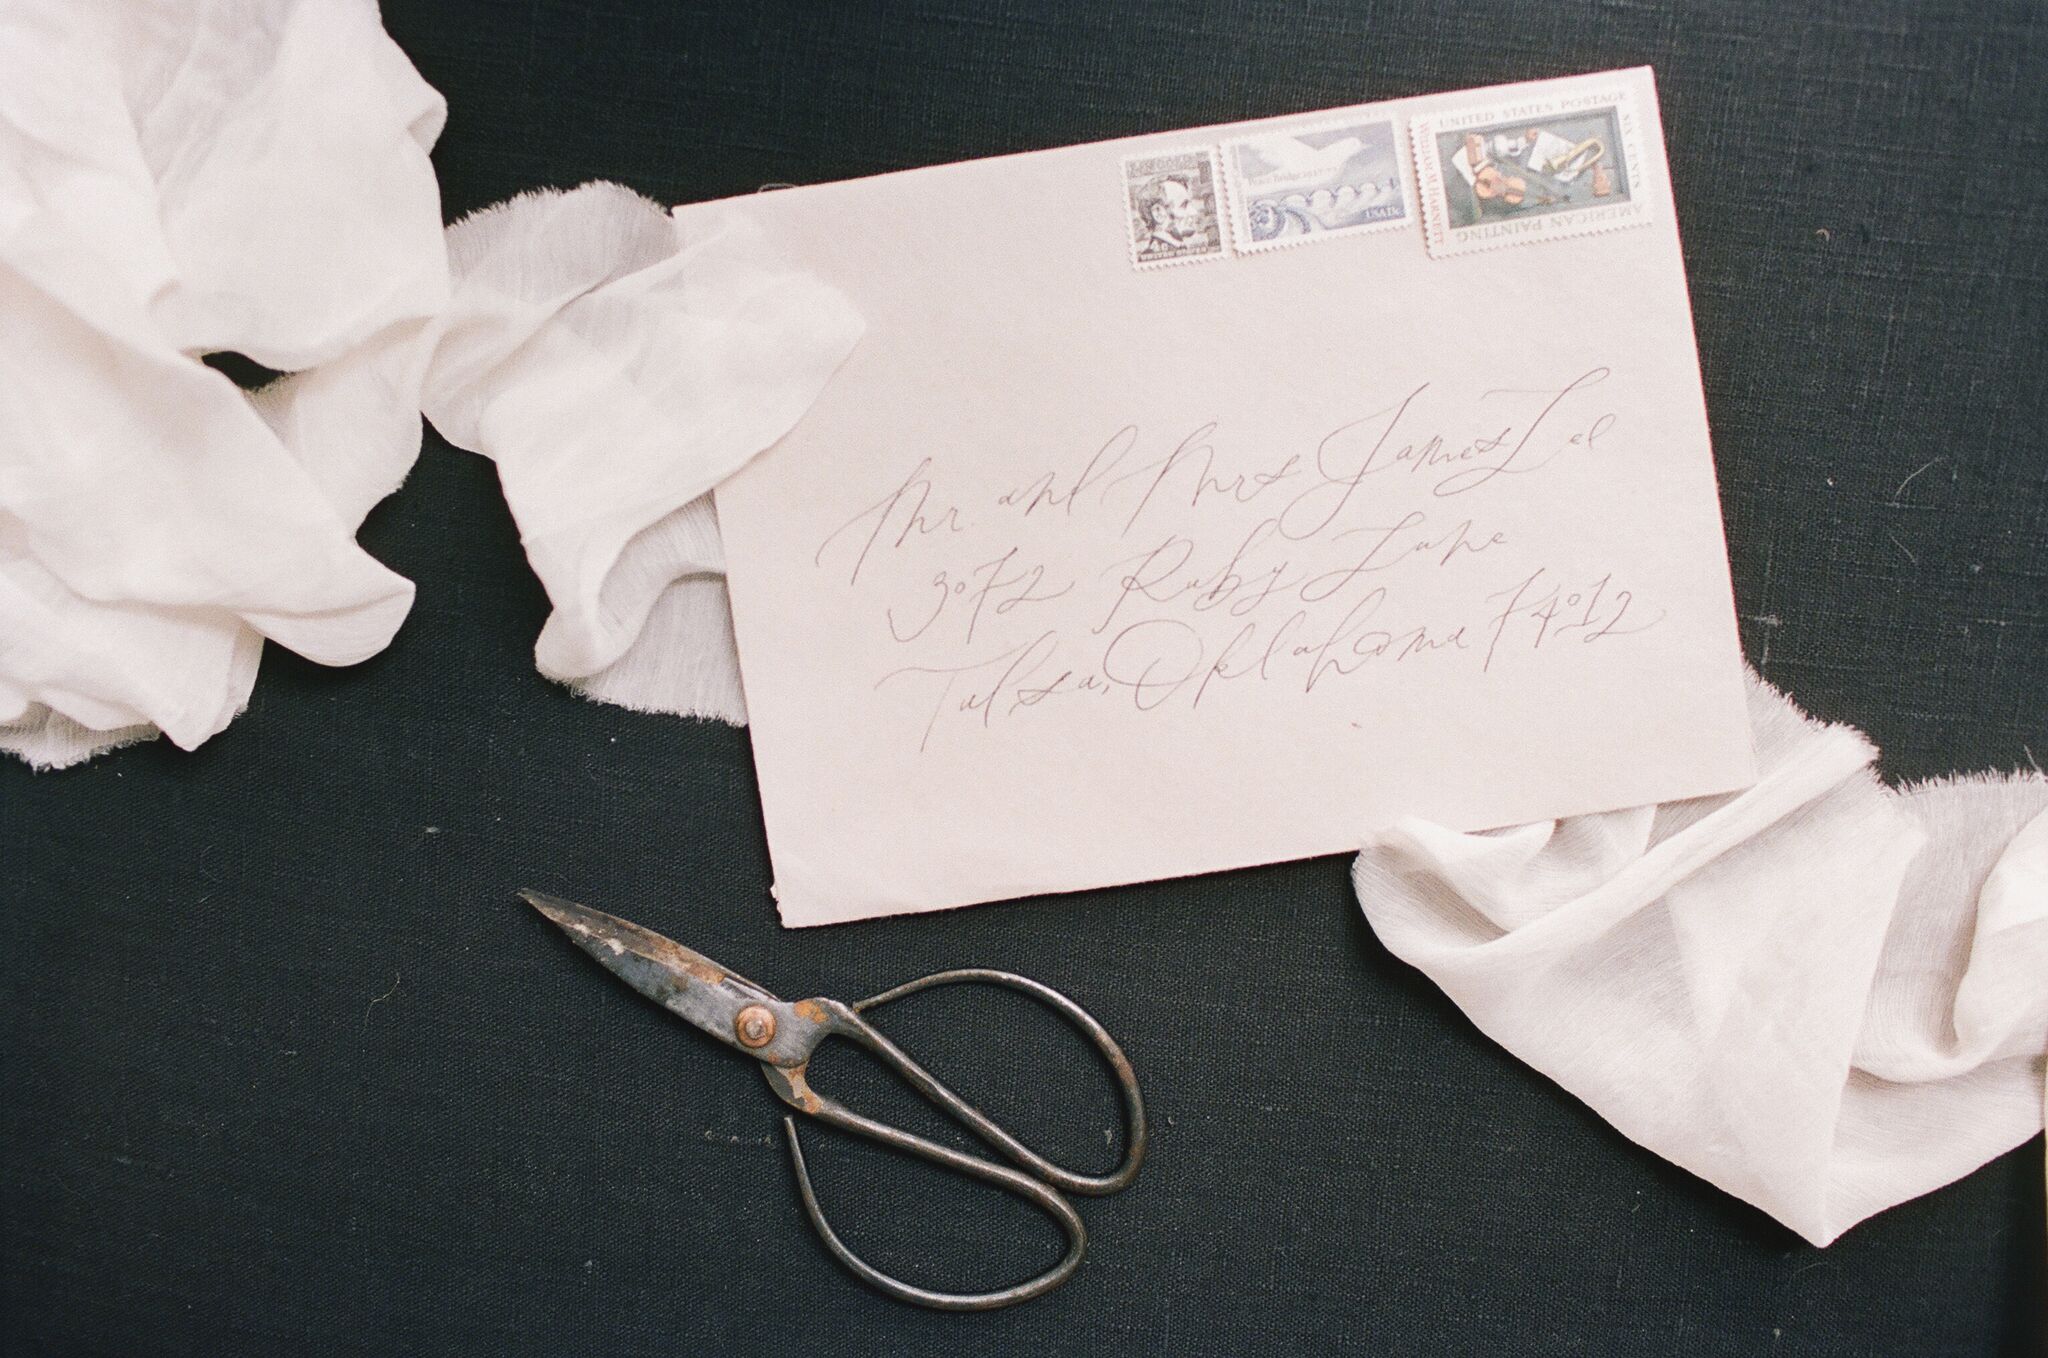 UNITED STATES POSTAGE
SIX CENTS
WILLIAM M. HARNETT
AMERICAN PAINTING
Peace Bridge 1927-77
USA 13c
Mr. and Mrs James Lee
3072 Ruby Lane
Tulsa, Oklahoma 74012